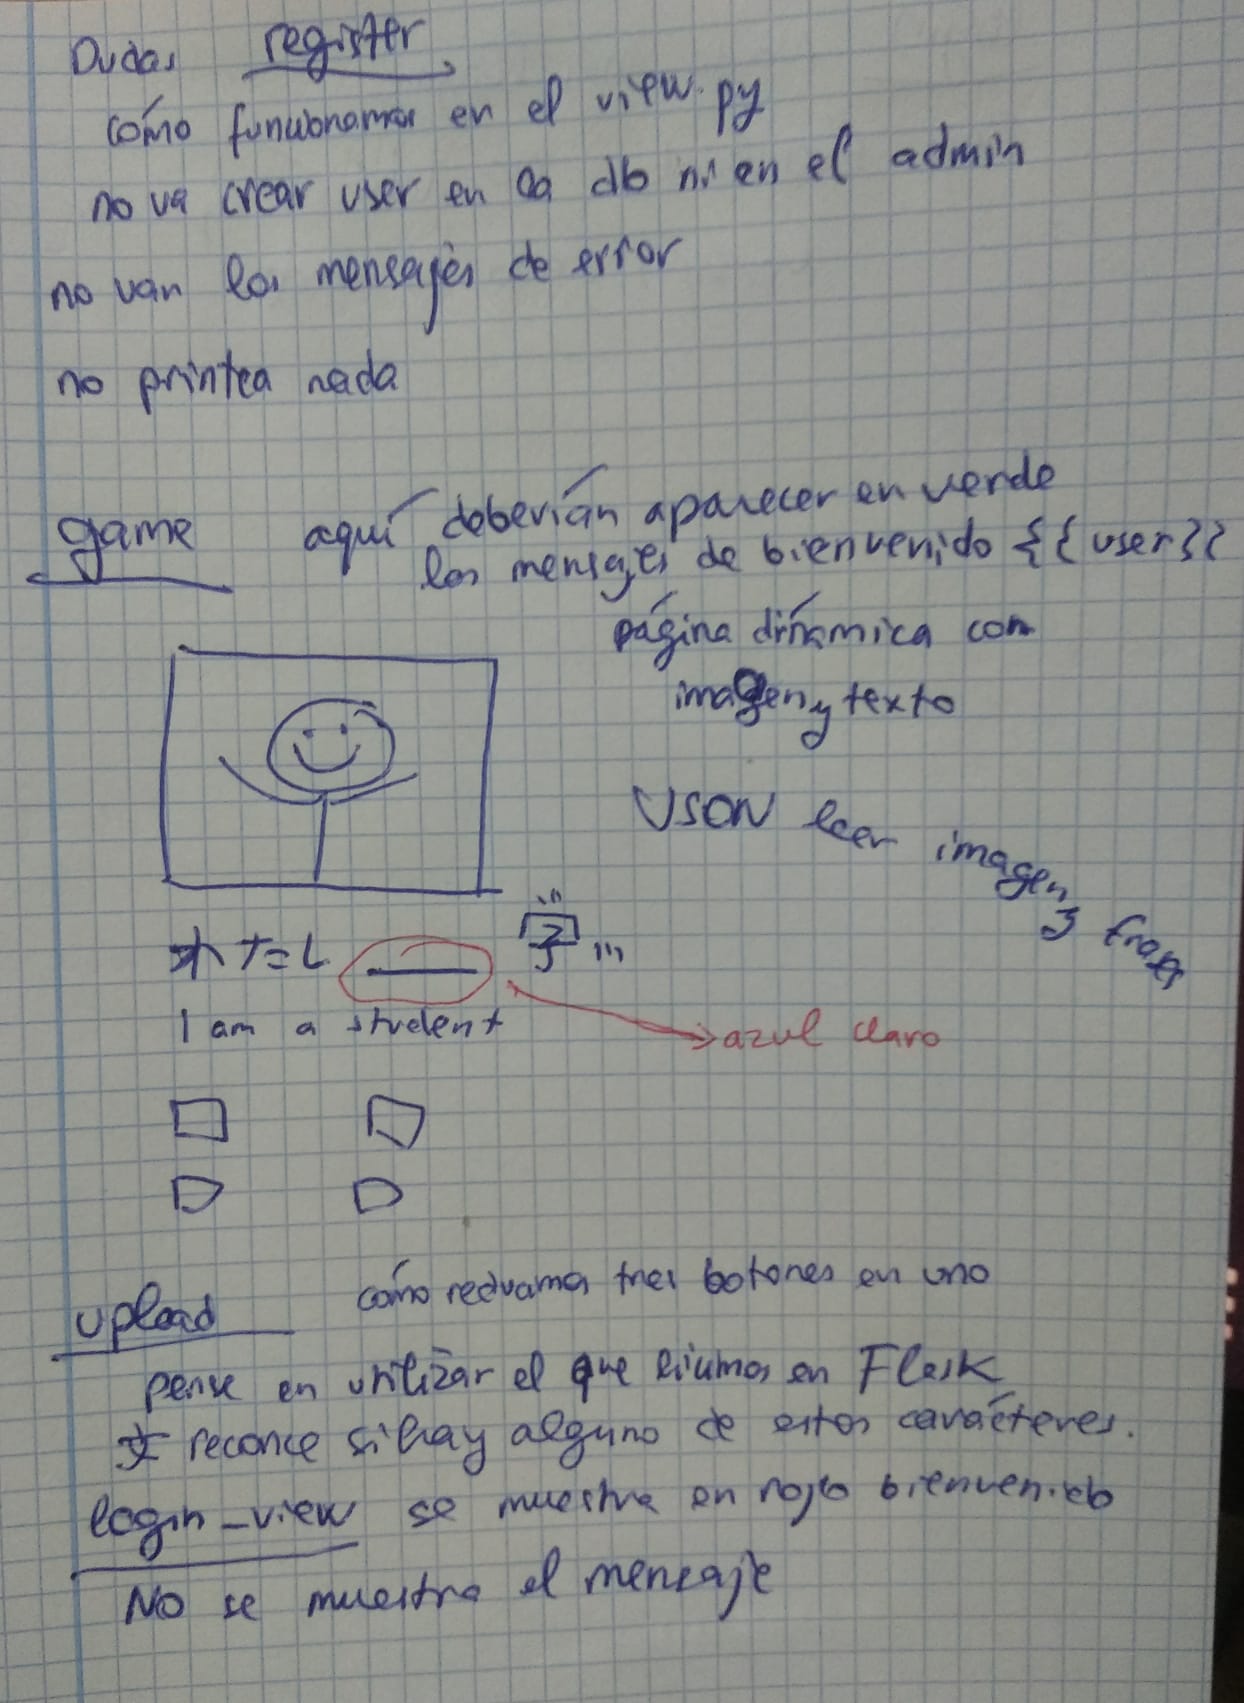 Dudas register
cómo funcionamos en el view.py
no va crear user en la db ni en el admin
no van los mensajes de error
no printea nada
game aquí deberían aparecer en verde
los mensajes de bienvenido {{user}}
página dinámica con
imagen y texto
JSON leer imagen y frases
I am a student
azul claro
upload cómo reducimos tres botones en uno
pense en utilizar el que hicimos en Flask
reconoce si hay alguno de estos carácteres.
login_view se muestra en rojo bienvenido
No se muestra el mensaje